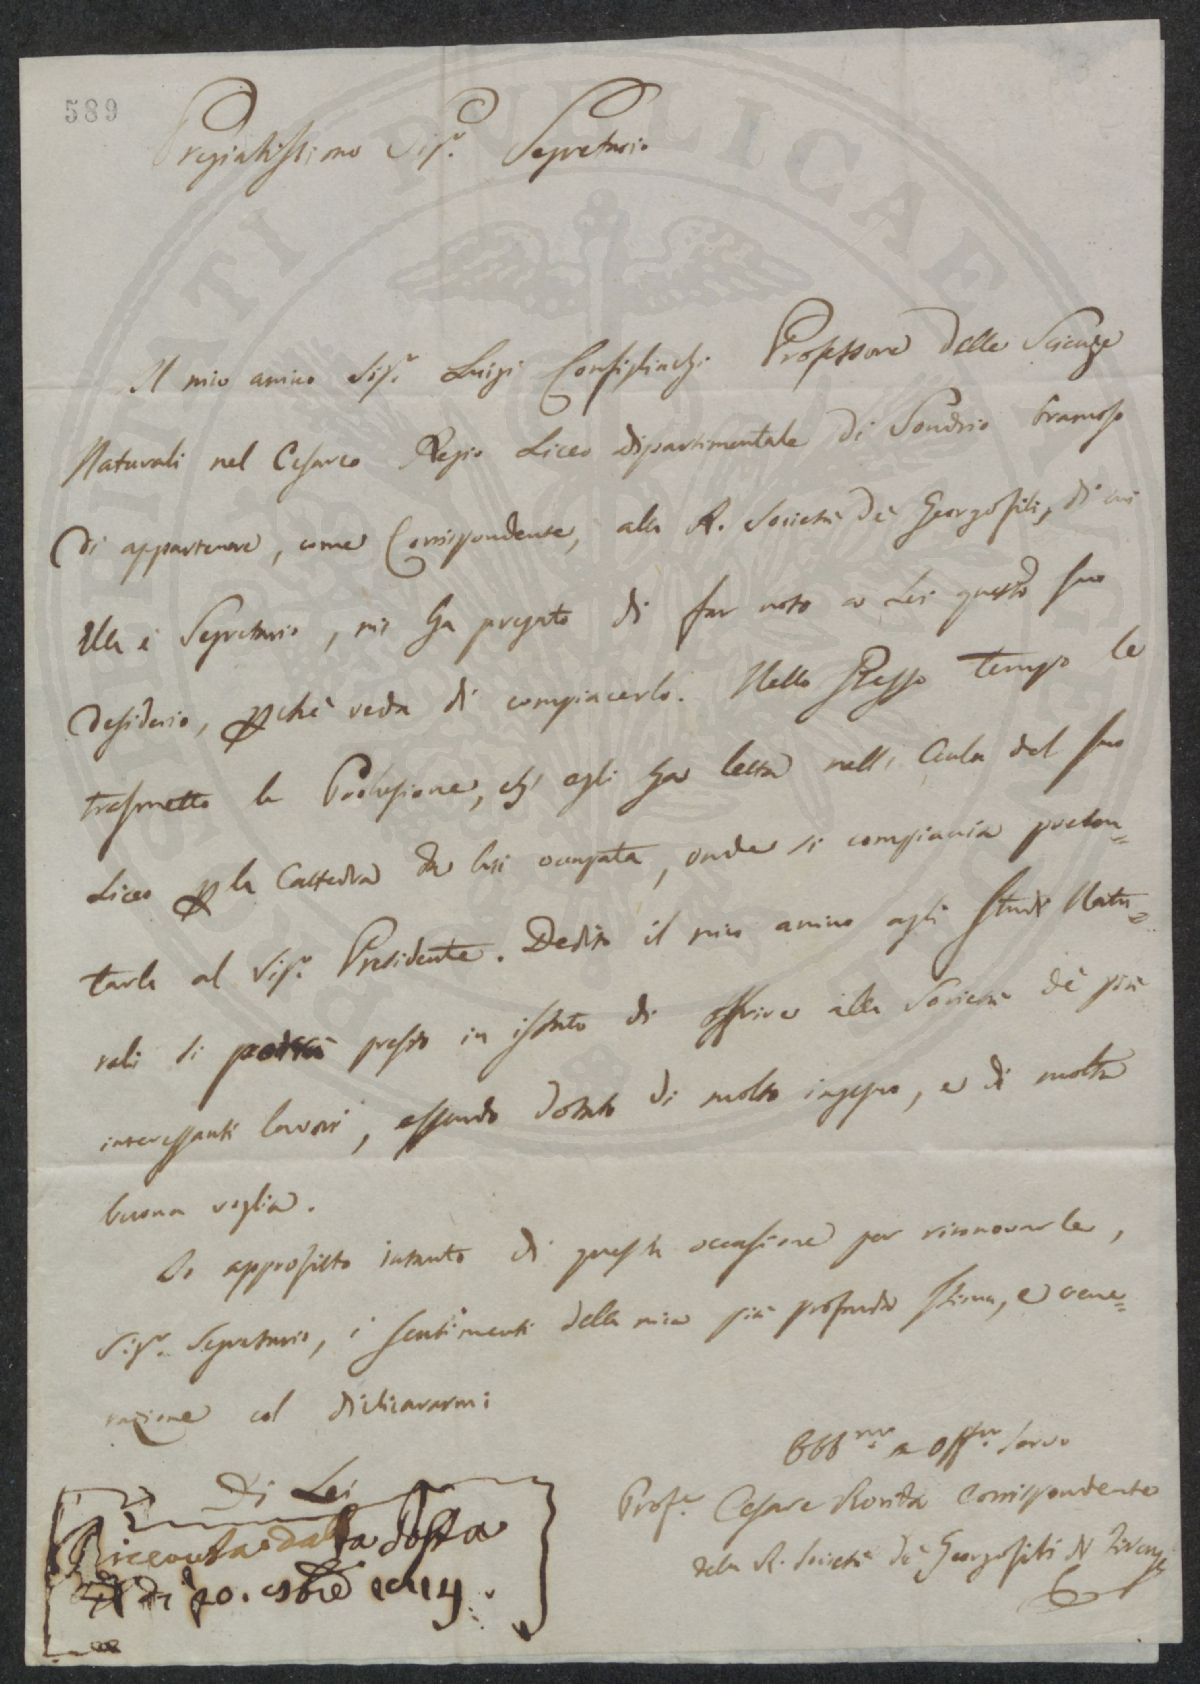 589
Pregiatissimo Sig.r Segretario
Il mio amico Sig.r Luigi Configliachi Professore delle Scienze
Naturali nel Cesareo Regio Liceo dipartimentale di Sondrio bramoso
di appartenere, come Corrispondente, alla R. Società de' Georgofili, di cui
Ella è Segretario, mi ha pregato di far noto a Lei questo suo
desiderio, pchè veda di compiacerlo. Nello stesso tempo le
trasmetto la Prolusione, ch' egli ha letta nell' Aula del suo
Liceo p la Cattedra da lui occupata, onde si compiaccia presen=
tarla al Sig.r Presidente. Dedito il mio amico agli studi Natu=
rali si presto in istato di offrire alla Società de' più
interessanti lavori, essendo dotato di molto ingegno, e di molta
buona voglia.
Io approfitto intanto di questa occasione per rinnovarle,
Sig.r Segretario, i sentimenti della mia più profonda stima, e vene=
razione col dichiararmi
Di Lei
Obb.mo e Off.mo Servo
Prof.r Cesare Rovida Corrispondente
della R. Società de' Georgofili di Firenze
Ricevuta dalla Posta
di 20. 9bre 1814.